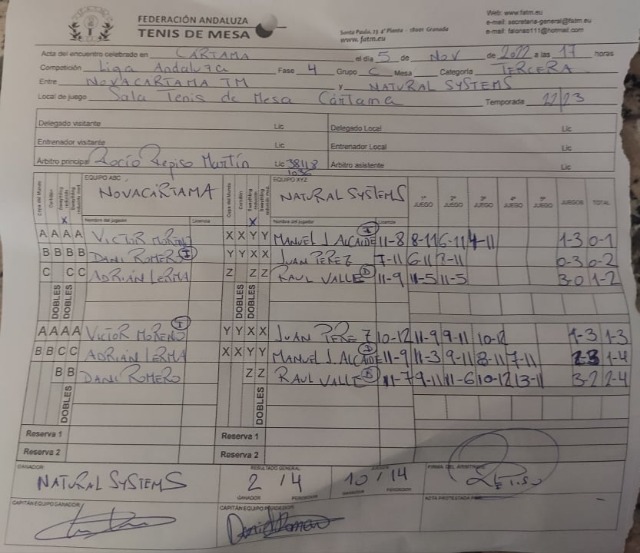 FEDERACIÓN ANDALUZA
TENIS DE MESA
Web: www.fatm.eu
e-mail: secretaria-general@fatm.eu
www.fatm.eu
Acta del encuentro celebrado en CÁRTAMA el día 5 de NOV de 2022 a las 17 horas
Competición Liga Andaluza Fase 4 Grupo C Mesa Categoría TERCERA
Entre NOVACÁRTAMA TM y NATURAL SYSTEMS
Local de juego Sala Tenis de Mesa Cártama Temporada 22/23
Delegado visitante Lic Delegado Local Lic
Entrenador visitante Lic Entrenador Local Lic
Arbitro principal Rocío Repiso Martín Lic Arbitro asistente Lic
EQUIPO ABC EQUIPO XYZ
NOVACÁRTAMA NATURAL SYSTEMS 1º JUEGO 2º JUEGO 3º JUEGO 4º JUEGO 5º JUEGO JUEGOS TOTAL
Nombre del jugador Licencia Nombre del jugador Licencia
A A A A VICTOR MORENO X X Y Y MANUEL J. ALCAIDE 11-8 8-11 6-11 4-11 1-3 0-1
B B B B DANI ROMERO Y Y X X JUAN PEREZ 7-11 6-11 0-3 0-2
C C C ADRIÁN LERMA Z Z Z RAUL VALLE 11-9 11-5 11-5 3-0 1-2
DOBLES DOBLES
A A A A VICTOR MORENO Y Y X X JUAN PEREZ 10-12 11-9 9-11 10-12 1-3 1-3
B B C C ADRIÁN LERMA X X Y Y MANUEL J. ALCAIDE 11-9 11-3 9-11 8-11 7-11 2-3 1-4
B B DANI ROMERO Z Z RAUL VALLE 11-7 9-11 11-6 10-12 13-11 3-2 2-4
DOBLES DOBLES
Reserva 1 Reserva 1
Reserva 2 Reserva 2
GANADOR RESULTADO GENERAL JUEGOS FIRMA DEL ARBITRO
NATURAL SYSTEMS 2/4 10/14
GANADOR PERDEDOR GANADOR PERDEDOR
CAPITÁN EQUIPO GANADOR CAPITÁN EQUIPO PERDEDOR